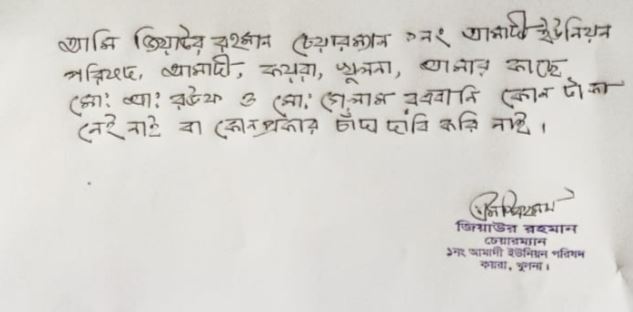 আমি জিয়াউর রহমান চেয়ারম্যান ১নং আমাদী ইউনিয়ন
পরিষদ, আমাদী, কয়রা, খুলনা, আমার কাছে
মো: আ: রউফ ও মো: গোলাম রব্বানি কোন টাকা
নেই নাই বা কোন প্রকার চাঁদা দাবি করি নাই।
জিয়াউর রহমান
চেয়ারম্যান
১নং আমাদী ইউনিয়ন পরিষদ
কয়রা, খুলনা।